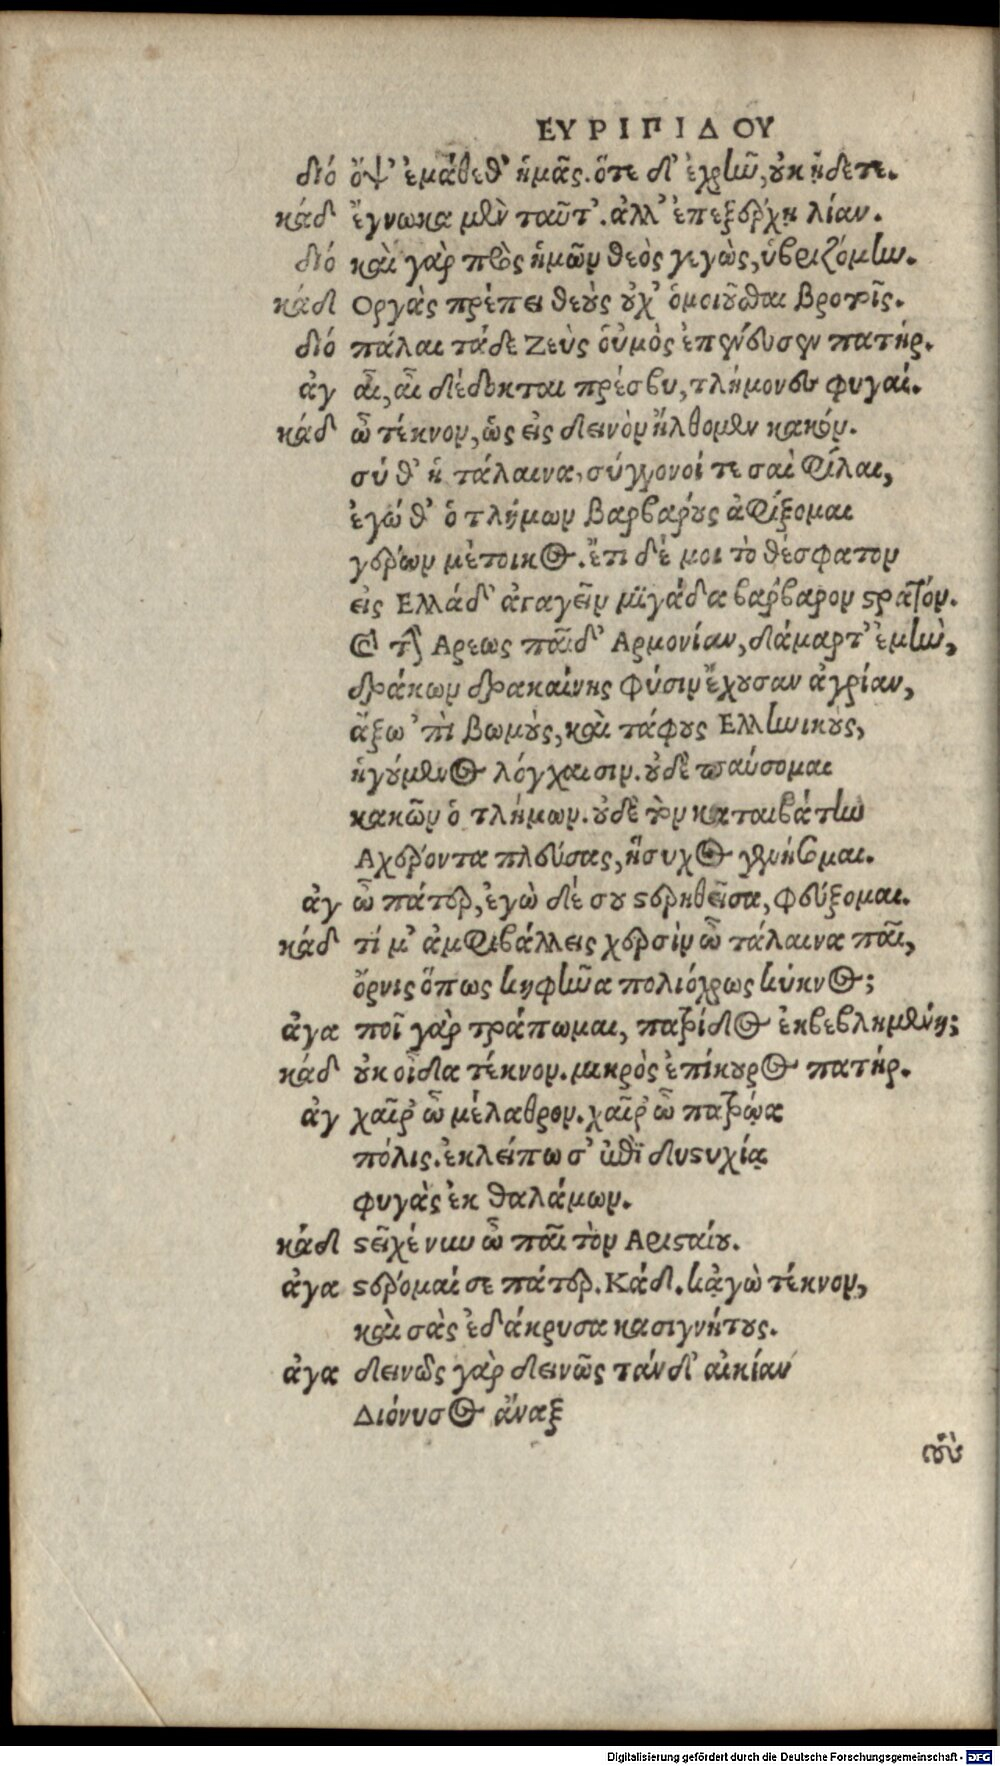 ΕΥΡΙΠΙΔΟΥ
διό ὄψ' ἐμάθεθ' ἡμᾶς. ὅτε δ' ἐχρῆν, οὐκ ᾔδετε.
κάδ ἔγνωκα μὲν ταῦτ'. ἀλλ' ἐπεξέρχῃ λίαν.
διό καὶ γὰρ πρὸς ἡμῶν θεὸς γεγὼς, ὑβριζόμην.
κάδ Οργὰς πρέπει θεοὺς οὐχ' ὁμοιοῦσθαι βροτοῖς.
διό πάλαι τάδε Ζεὺς οὑμὸς ἐπένευσεν πατήρ.
ἀγ αἶ, αἶ δέδοκται πρέσβυ, τλήμονες φυγαί.
κάδ ὦ τέκνον, ὡς εἰς δεινὸν ἤλθομεν κακόν.
σύ θ' ἡ τάλαινα, σύγγονοί τε σαὶ φίλαι,
ἐγώ θ' ὁ τλήμων βαρβάρους ἀφίξομαι
γέρων μέτοικος. ἔτι δέ μοι τὸ θέσφατον
εἰς Ελλάδ' ἀγαγεῖν μιγάδα βάρβαρον στρατόν.
καὶ τὴν Αρεως παῖδ' Αρμονίαν, δάμαρτ' ἐμὴν,
δράκων δρακαίνης φύσιν ἔχουσαν ἀγρίαν,
ἄξω 'πὶ βωμοὺς, καὶ τάφους Ελληνικοὺς,
ἡγούμενος λόγχαισιν. οὐδὲ παύσομαι
κακῶν ὁ τλήμων. οὐδὲ τὸν καταιβάτην
Αχέροντα πλεύσας, ἥσυχος γενήσομαι.
ἀγ ὦ πάτερ, ἐγὼ δέ σου στερηθεῖσα, φεύξομαι.
κάδ τί μ' ἀμφιβάλλεις χερσὶν ὦ τάλαινα παῖ,
ὄρνις ὅπως κηφῆνα πολιόχρως κύκνος;
ἀγα ποῖ γὰρ τράπωμαι, πατρίδος ἐκβεβλημένη;
κάδ οὐκ οἶδα τέκνον. μικρὸς ἐπίκουρος πατήρ.
ἀγ χαῖρ' ὦ μέλαθρον. χαῖρ' ὦ πατρῴα
πόλις. ἐκλείπω σ' ἐπὶ δυστυχίᾳ
φυγὰς ἐκ θαλάμων.
κάδ στεῖχέ νυν ὦ παῖ τὸν Αρισταίου.
ἀγα στέρομαί σε πάτερ. Κάδ. κἀγὼ τέκνον,
καὶ σὰς ἐδάκρυσα κασιγνήτους.
ἀγα δεινῶς γὰρ δεινῶς τάνδ' αἰκίαν
Διόνυσος ἄναξ
τοὺς
Digitalisierung gefördert durch die Deutsche Forschungsgemeinschaft - DFG